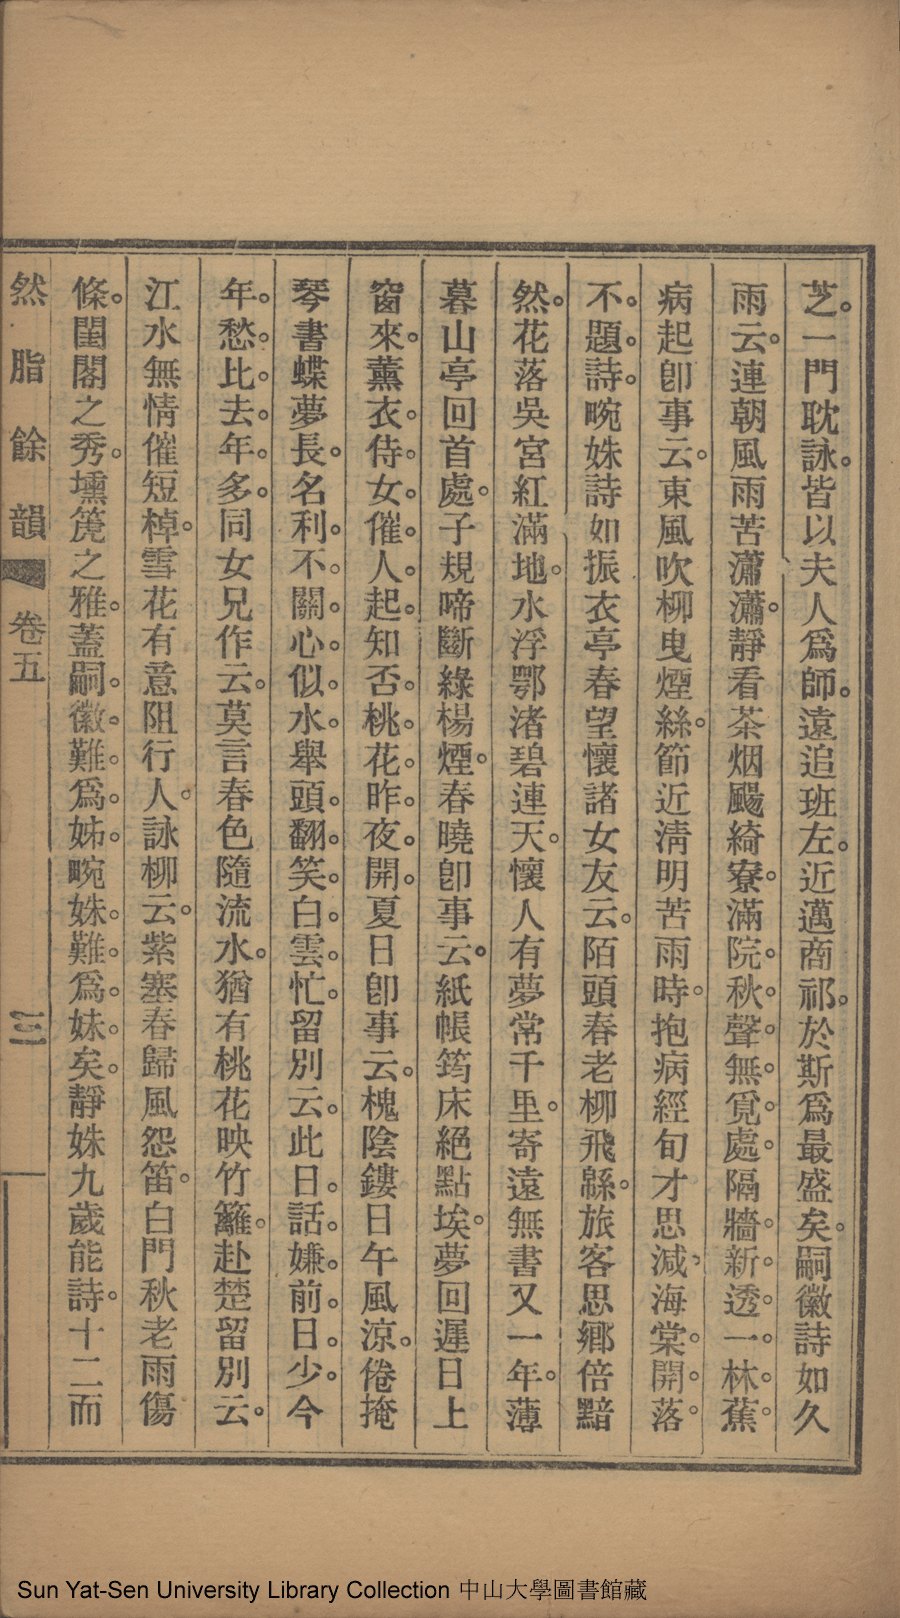 芝。一門耽詠。皆以夫人爲師。遠追班左。近邁商祁。於斯爲最盛矣。嗣徽詩如久
雨云。連朝風雨苦瀟瀟。靜看茶烟颺綺寮。滿院。秋。聲。無。覓。處。隔牆。新。透。一。林。蕉。
病起卽事云。東風吹柳曳煙絲。節近淸明苦雨時。抱病經旬才思減。海棠。開。落。
不。題。詩。畹姝詩如振衣亭春望懷諸女友云。陌頭春老柳飛緜。旅客思鄕倍黯
然。花落吳宮紅滿地。水浮鄂渚碧連天。懷人有夢常千里。寄遠無書又一年。薄
暮山亭回首處。子規啼斷綠楊煙。春曉卽事云。紙帳筠床絕點埃。夢回遲日上
窗來。薰衣。侍。女。催。人。起。知否。桃。花。昨。夜。開。夏日卽事云。槐陰鏤日午風涼。倦掩
琴書蝶夢長。名利。不。關。心。似。水。舉頭。翻。笑。白。雲。忙。留別云。此日。話。嫌。前。日。少。今
年。愁。比。去。年。多。同女兄作云。莫言春色隨流水。猶有桃花映竹籬。赴楚留別云。
江水無情催短棹。雪花有意阻行人。詠柳云。紫塞春歸風怨笛。白門秋老雨傷
條。閨閣之秀。壎篪之雅。蓋嗣。徽。難。爲。姊。畹姝。難。爲。妹。矣。靜姝九歲能詩。十二而
然脂餘韻 卷五 三
Sun Yat-Sen University Library Collection 中山大學圖書館藏